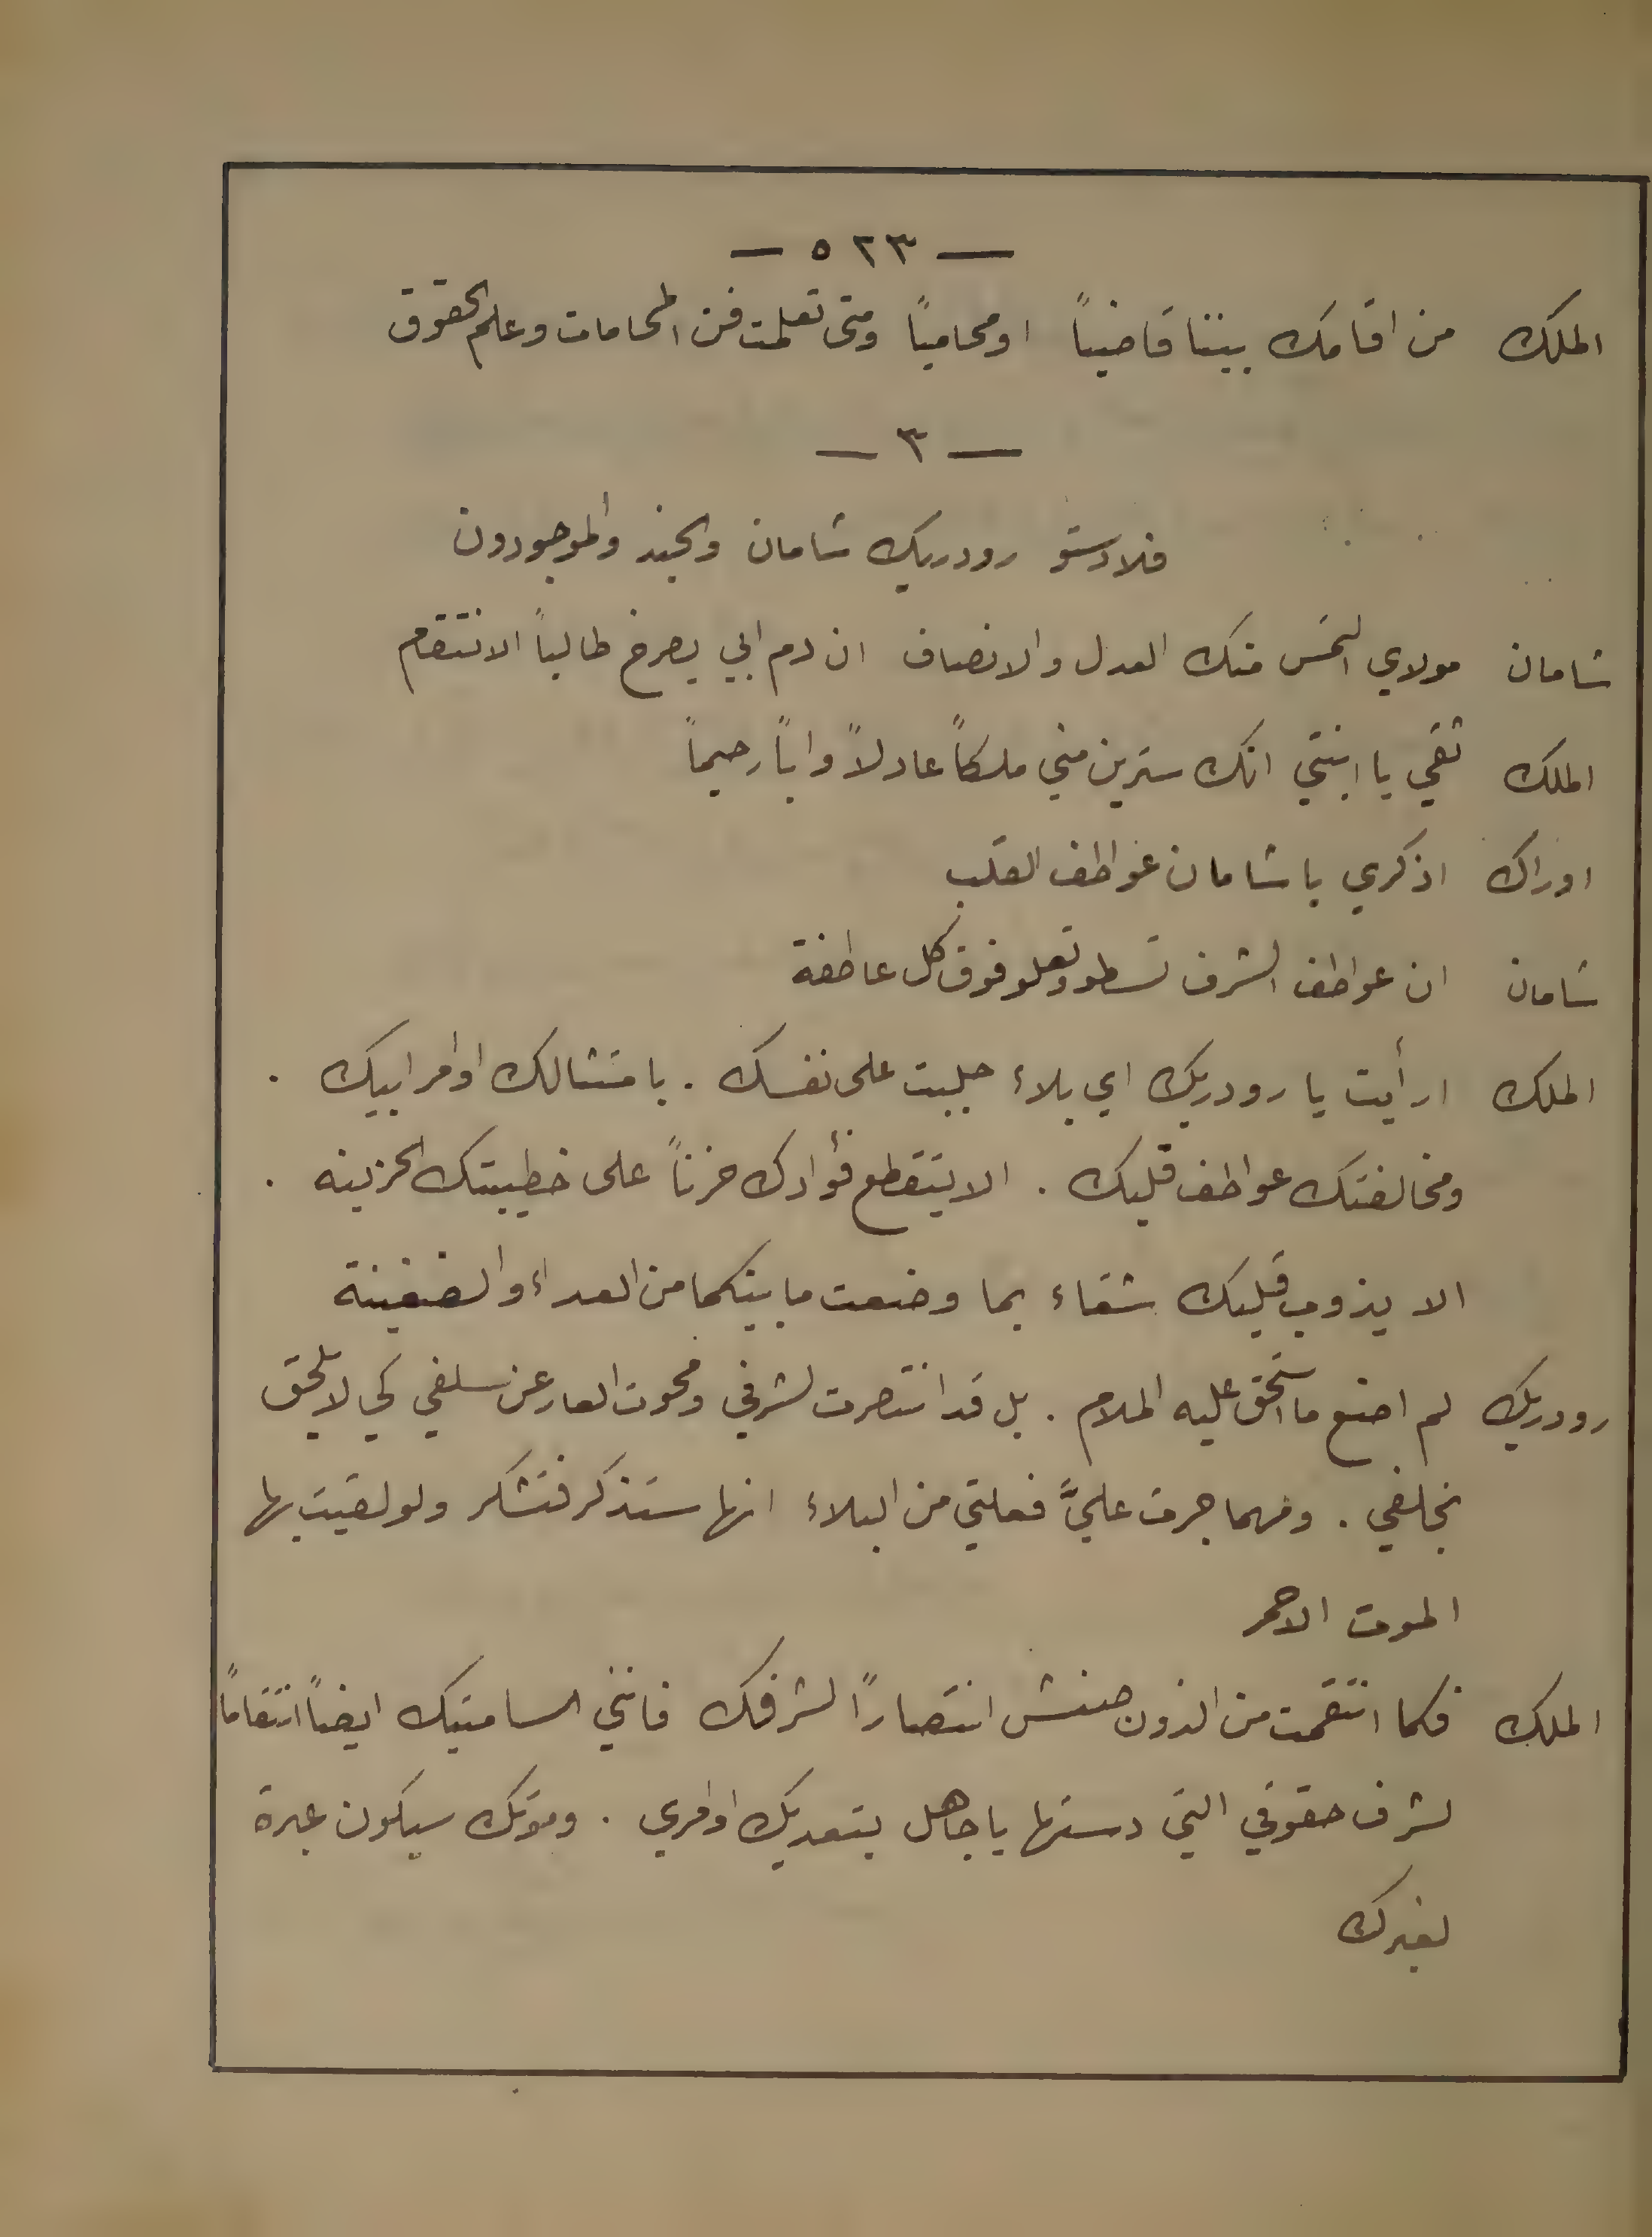 — ٥٢٣ —
الملك من اقامك بيننا قاضياً او محامياً ومتى تعلمت فن المحامات وعلم الحقوق
— ٣ —
فلادستو رودريك شامان والجند والموجودون
شامان مولاي التمس منك العدل والانصاف ان دم ابي يصرخ طالباً الانتقام
الملك ثقي يا ابنتي انك سترين مني ملكاً عادلاً واباً رحيماً
اوراك اذكري يا شامان عواطف القلب
شامان ان عواطف الشرف تسطو وتعلو فوق كل عاطفة
الملك ارأيت يا رودريك اي بلاء جلبت على نفسك . بامتثالك اوامر ابيك .
ومخالفتك عواطف قلبك . الا يتقطع فؤادك حزناً على خطيبتك الحزينه .
الا يذوب قلبك شقاء بما وضعت ما بينكما من العداء والضغينة
رودريك لم اصنع ما استحق عليه الملام . بل قد انتصرت لشرفي ومحوت العار عن سلفي كي لا يلحق
بخلفي . ومهما جرت عليَّ فعلتي من البلاء انها ستذكر فتشكر ولو لقيت بها
الموت الاحمر
الملك فكما انتقمت من الدون صنش انتصاراً لشرفك فانني اليسا ميتك ايضاً انتقاماً
لشرف حقوقي التي دستها يا جاهل بتعديك اوامري . وموتك سيكون عبرة
لغيرك